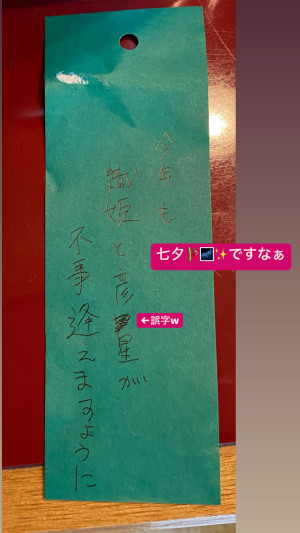 今年も
織姫と彦星が
不事逢えますように
七夕🎋🌌✨ですなぁ
←誤字w